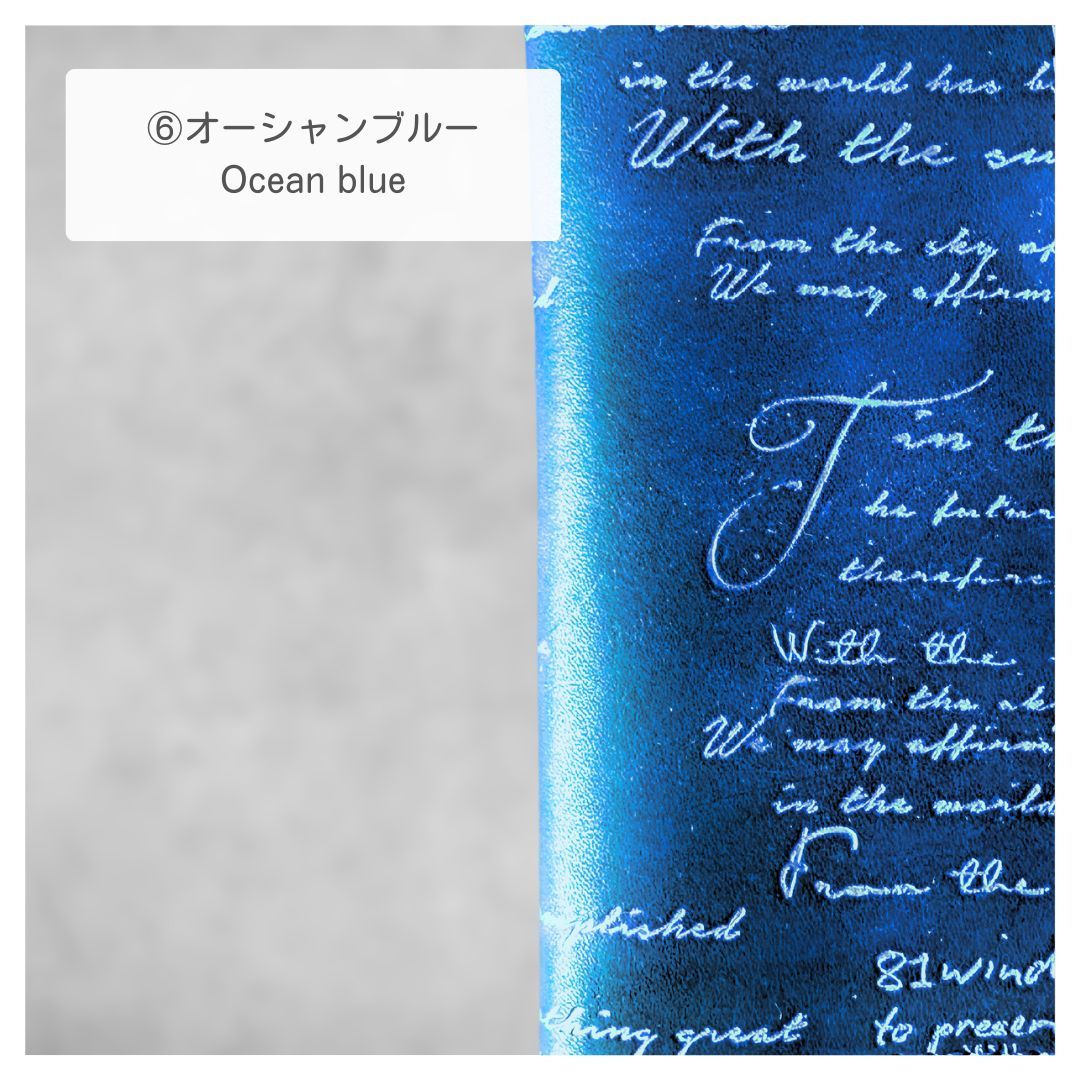 ⑥オーシャンブルー
Ocean blue
in the world has
With the
From the sky
We may affirm
T in
he
therefore
With the
From the
We may affirm
in the world
From the
plished
81wind
thing great
to